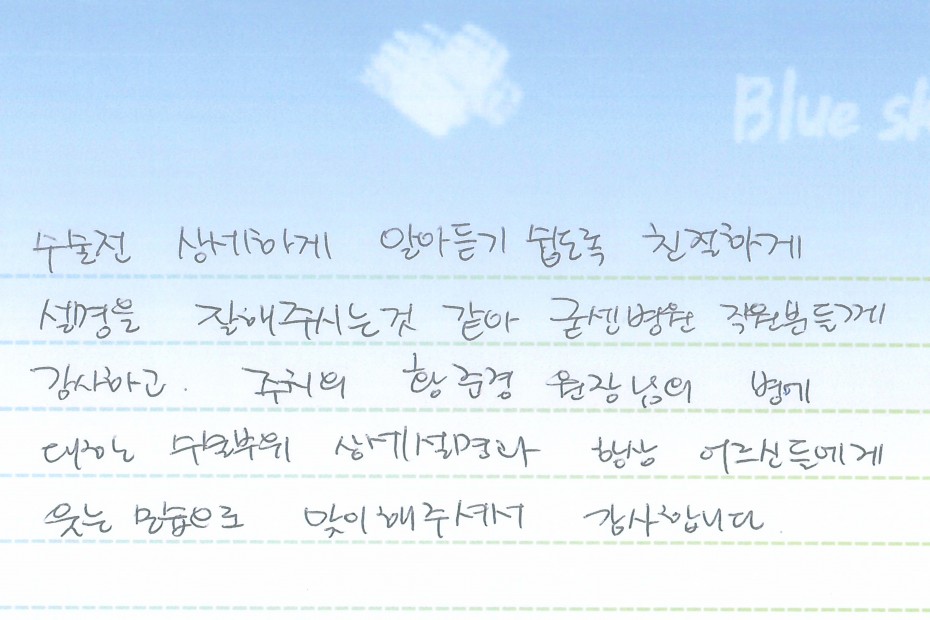 Blue sk
수술전 상세하게 알아듣기 쉽도록 친절하게
설명을 잘해주시는것 같아 굳센병원 직원분들께
감사하고. 주치의 황준경 원장님의 병에
대하는 수술부위 상세설명과 항상 어르신들에게
웃는 모습으로 맞이해주셔서 감사합니다.